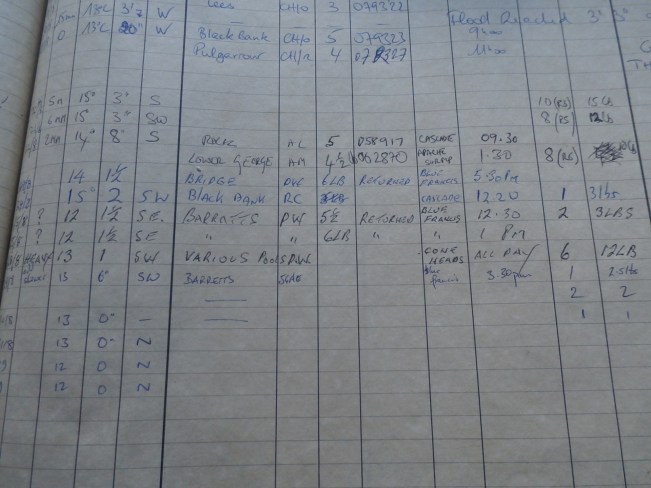 13°C 3'7 W Lees CH/O 3 079322
0 13°C W Black Bank CH/O 5 079323 Flood Reached 3° 3°
Pulgarrow 4 9.00
11.00
5m 15° 3° S 10 (RS) 15 lb
6m 15 3" SW 8 (RS) 12 lb
2m 14° 8" S ROCK AL 5 058917 CASCADE 09.30
LOWER GEORGE AM 4½ 002870 1.30 8 (RS)
14 1½ BRIDGE DW 6LB RETURNED BLUE FRANCIS 5.30PM
15° 2 SW BLACK BANK RC CASCADE 12.20 1 3 lbs
? 12 1½ SE BARRETTS PW 5½ RETURNED BLUE FRANCIS 12.30 2 3LBS
? 12 1½ SE " " 6LB " " 1 PM
HEAVY 13 1 SW VARIOUS POOLS CONE HEADS ALL DAY 6 12LB
13 6" SW BARRETTS 3.30pm 1 2.5lbs
2 2
13 0" — 1 1
13 0" N
12 0 N
12 0 N